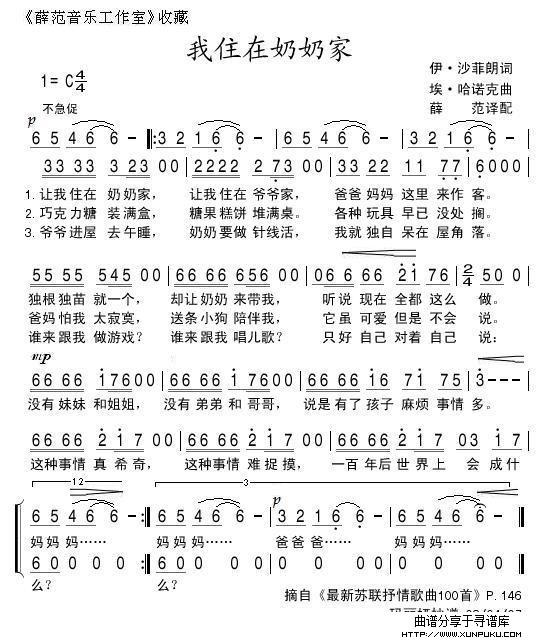 《薛范音乐工作室》收藏
我住在奶奶家
1= C 4/4
伊·沙菲朗词
埃·哈诺克曲
薛 范译配
不急促
p
6 5 4 6 6 - 3 2 1 6 6 - 6 5 4 6 6 - 3 2 1 6 6 -
33 33 3 23 00 2222 2 73 00 33 33 22 11 77 6000
1. 让我住在 奶奶家, 让我住在 爷爷家, 爸爸 妈妈 这里 来作 客。
2. 巧克力糖 装满盒, 糖果糕饼 堆满桌。 各种 玩具 早已 没处 搁。
3. 爷爷进屋 去午睡, 奶奶要做 针线活, 我就 独自 呆在 屋角 落。
55 55 545 00 66 66 656 00 06 6 66 21 76 2/4 50 0
独根独苗 就一个, 却让奶奶 来带我, 听说 现在 全都 这么 做。
爸妈怕我 太寂寞, 送条小狗 陪伴我, 它虽 可爱 但是 不会 说。
谁来跟我 做游戏? 谁来跟我 唱儿歌? 只好 自己 对着 自己 说:
mp
66 66 17600 66 66 17600 66 66 17 71 75 3---
没有妹妹 和姐姐, 没有弟弟 和哥哥, 说是 有了 孩子 麻烦 事情 多。
66 66 2 17 0 66 66 2 17 0 66 66 2 17 03 17
这种事情 真希奇, 这种事情 难捉摸, 一百 年后 世界上 会 成什
12 3 p
6 5 4 6 6 - 6 5 4 6 6 - 3 2 1 6 6 - 6 5 4 6 6 -
妈妈 妈…… 妈妈 妈…… 爸爸 爸…… 妈妈 妈……
6 0 0 0 6 0 0 0 0 0 0 0 0 0 0 0
么? 么?
摘自《最新苏联抒情歌曲100首》P. 146
曲谱分享于寻谱库
HTTP://WWW.XUNPUKU.COM